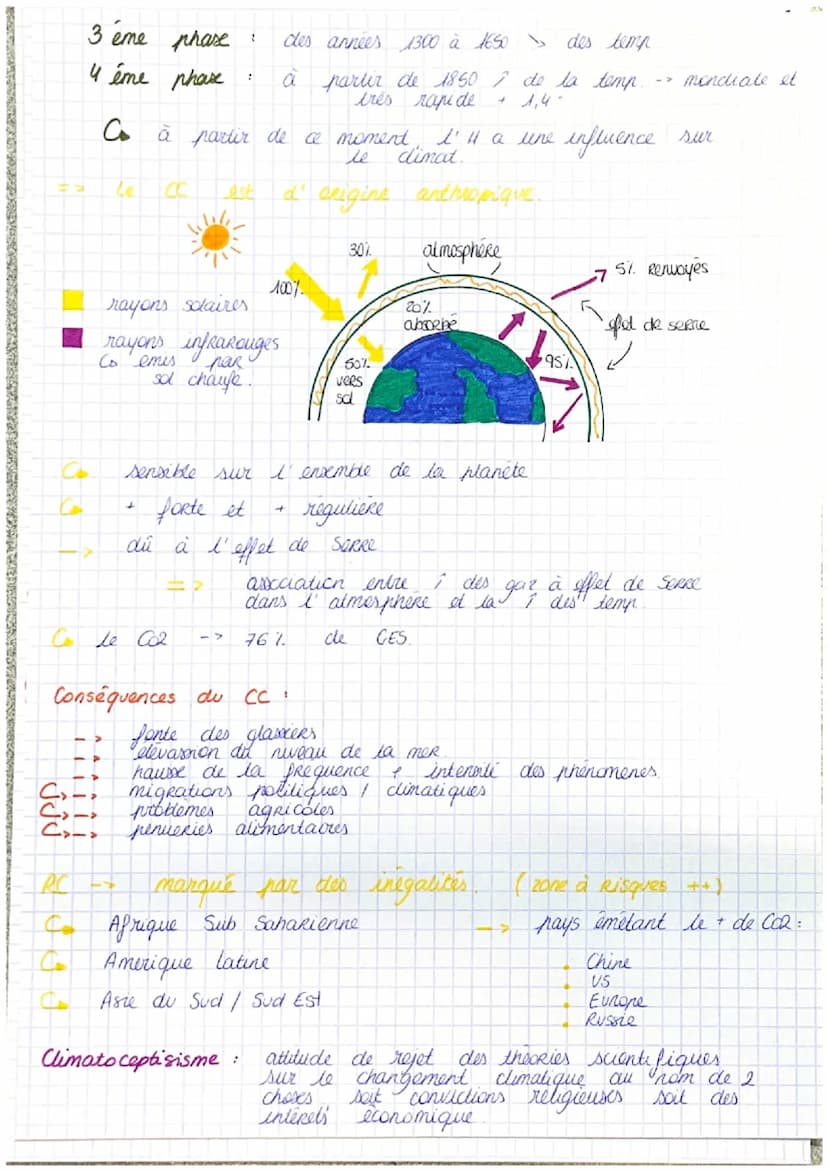 3 éme phase : des années 1300 à 1650 ↘ des temp
4 éme phase : à partir de 1850 ↑ de la temp. --> mondiale et
très rapide + 1,4°
↳ à partir de ce moment, l'H a une influence sur
le climat.
=> Le CC est d'origine anthropique.
30%
atmosphère
5% renvoyés
100%
rayons solaires
20%
absorbé
effet de serre
rayons infrarouges
↳ émis par
sol chaufé.
50%
vers
sol
95%
↳ sensible sur l'ensemble de la planète
↳ + forte et + régulière
--> dû à l'effet de serre
=> association entre ↑ des gaz à effet de serre
dans l'atmosphère et la ↑ des temp.
↳ le CO2 --> 76% de GES.
Conséquences du CC :
--> fonte des glassiers
--> élévassion du niveau de la mer
--> hausse de la fréquence + intensité des phénomènes.
↳--> migrations politiques / climatiques
↳--> problèmes agricoles
↳--> pénueries alimentaires
RC --> marqué par des inégalités. (zone à risques ++)
↳ Afrique Sub Saharienne
--> pays émétant le + de CO2 :
↳ Amérique latine
• Chine
• US
↳ Asie du Sud / Sud Est
• Europe
• Russie
Climatoceptisisme : attitude de rejet des théories scientifiques
sur le changement climatique au nom de 2
choses soit convictions religieuses soit des
intérets économique.